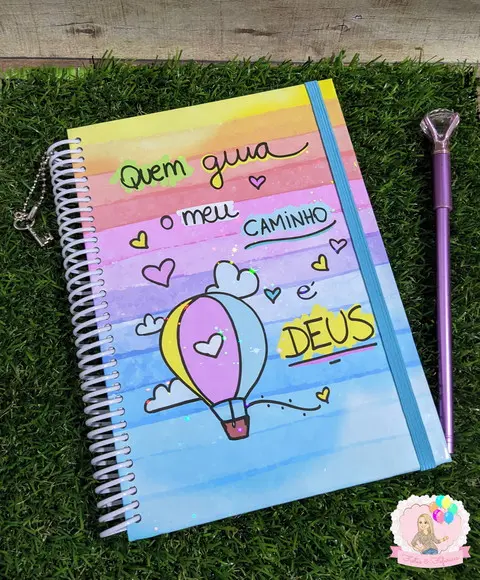 Quem guia
o meu CAMINHO
é
DEUS